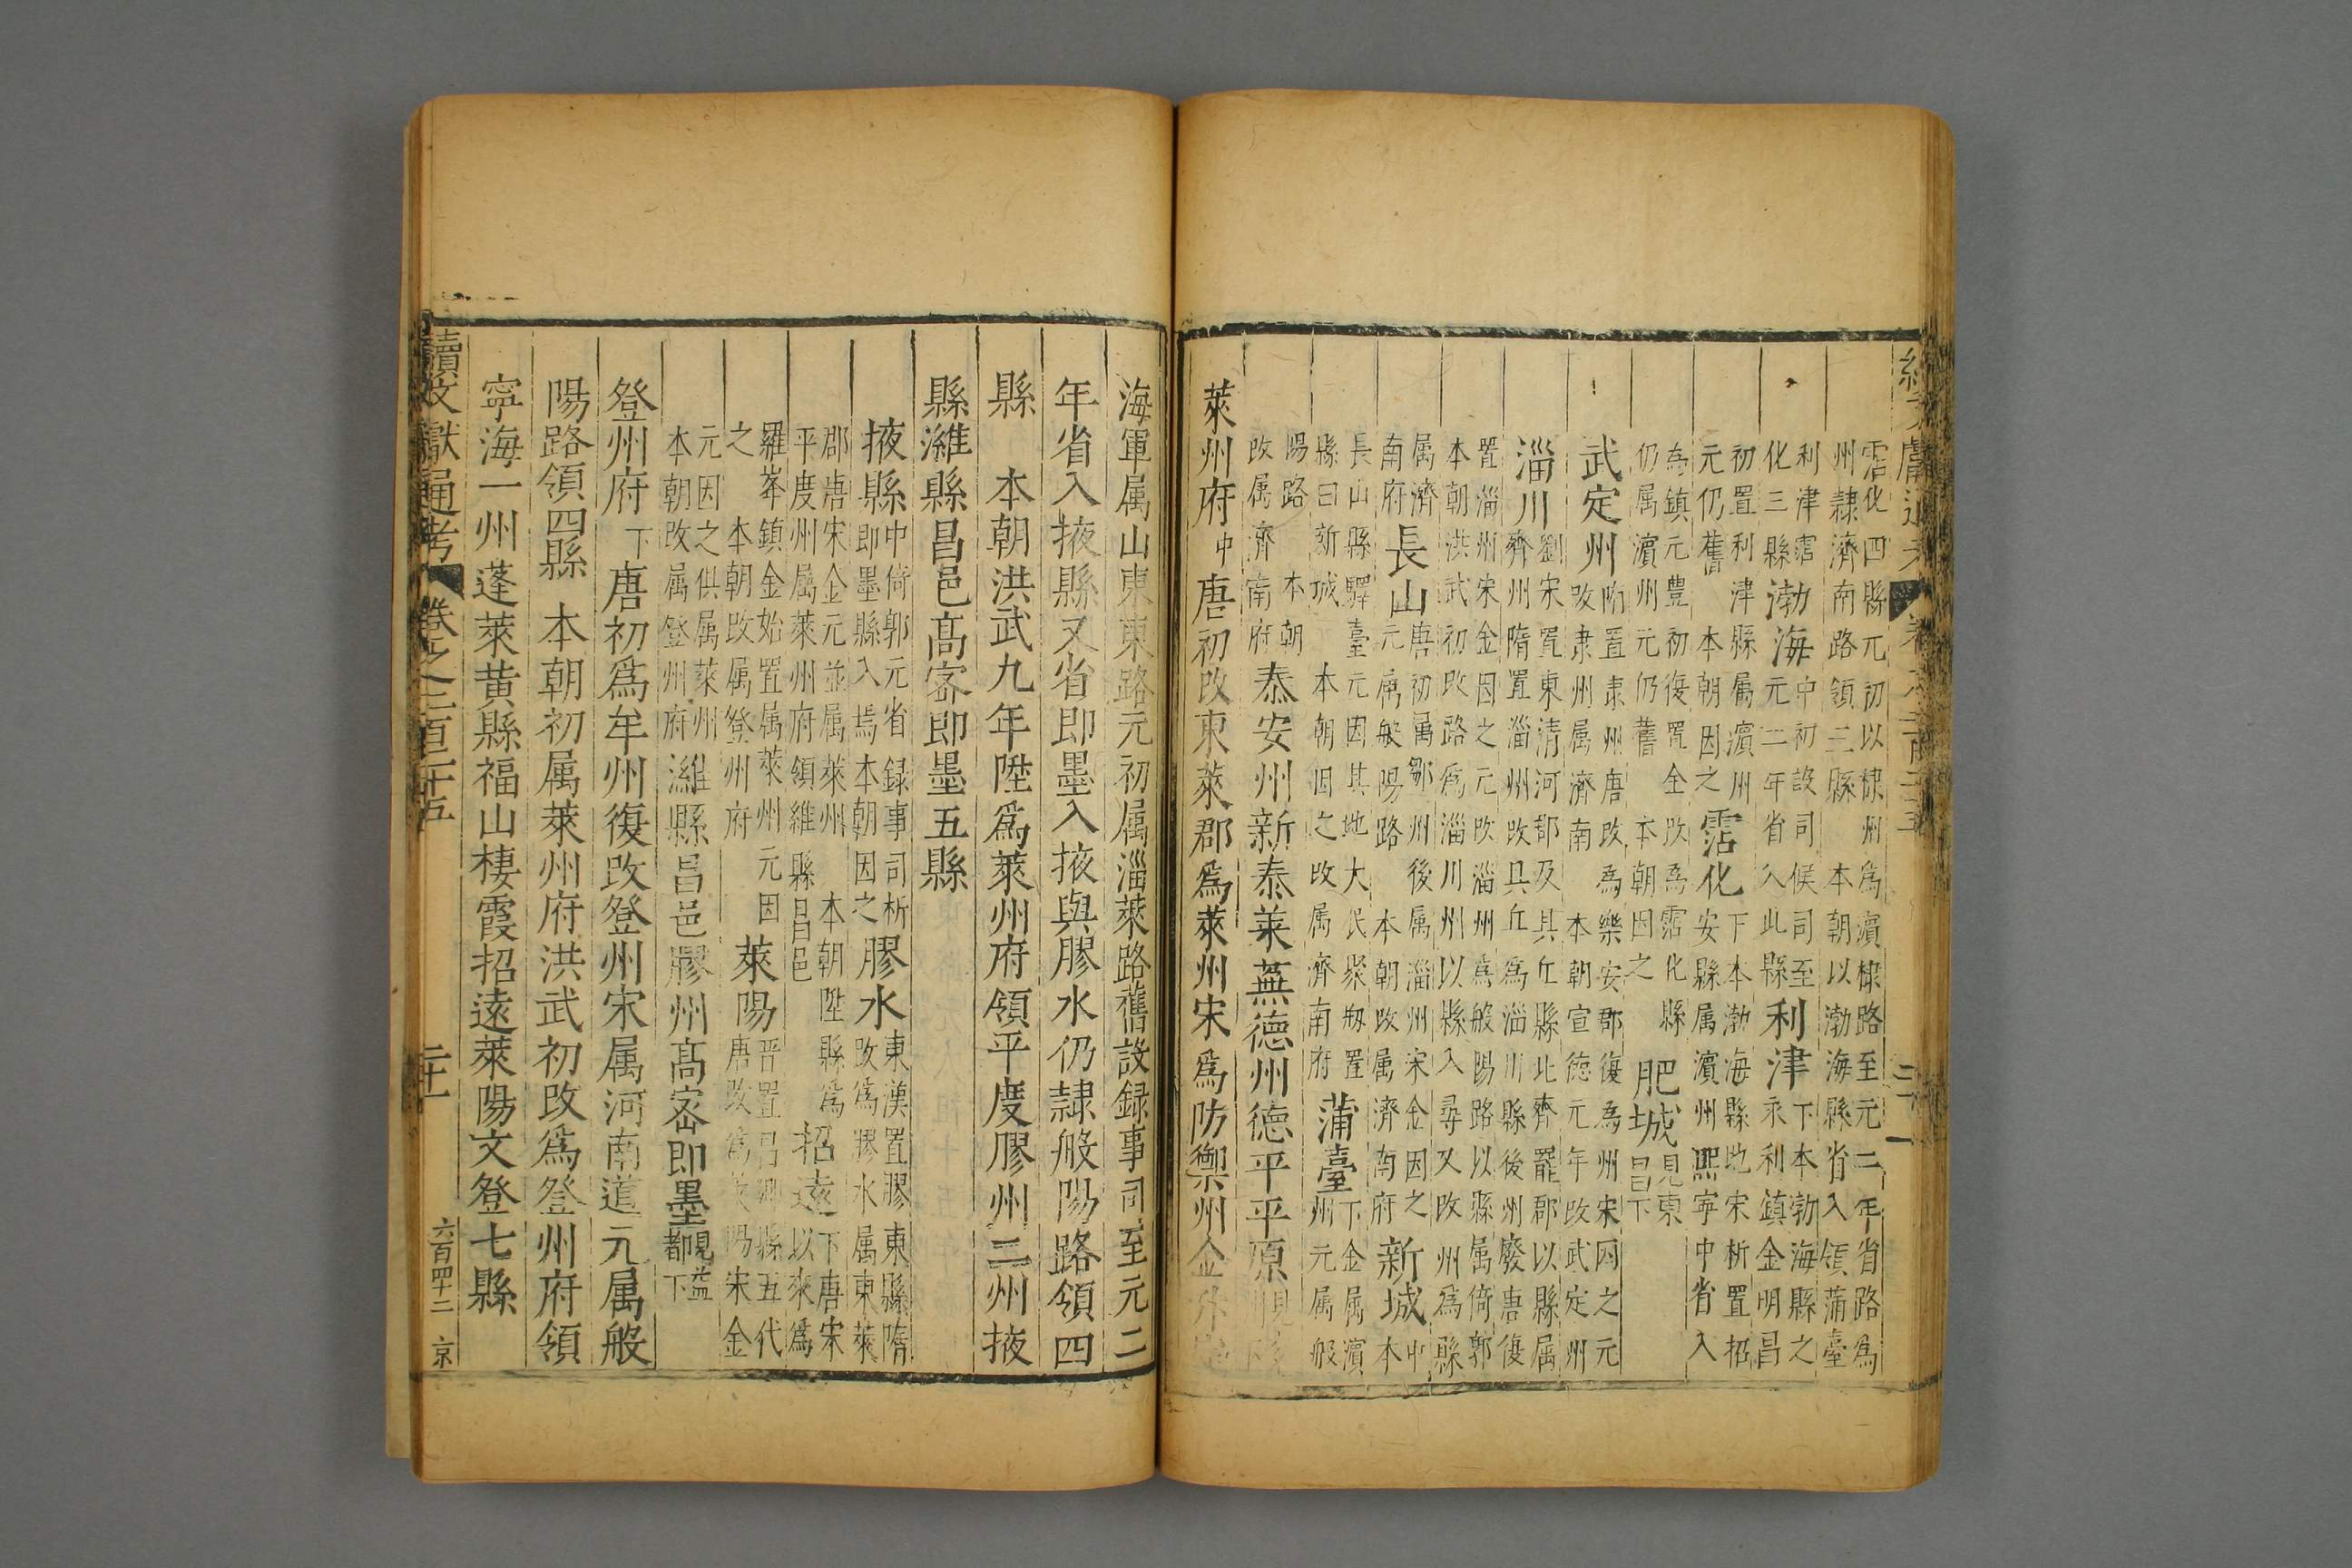 霑化四縣元初以棣州爲濱棣路至元二年省路爲
州隸濟南路領三縣 本朝以渤海縣省入領蒲臺
利津霑
化三縣
渤海
中初設司候司至
元二年省入此縣
利津
下本渤海縣之
永利鎮金明昌
初置利津縣属濱州
元仍舊 本朝因之
霑化
下本渤海縣地宋析置招
安縣属濱州熙寧中省入
爲鎮元豊初復置金改爲霑化縣
仍属濱州元仍舊 本朝因之
肥城
見東
昌下
武定州
隋置隶州唐改爲樂安郡復爲州宋因之元
改隶州属濟南 本朝宣德元年改武定州
淄川
劉宋置東清河郡及其丘縣北齊罷郡以縣属
齊州隋置淄州改具丘爲淄川縣後州廢唐復
置淄州宋金因之元改淄州爲般陽路以縣属倚郭
本朝洪武初改路爲淄川州以縣入尋又改州爲縣
属濟
南府
長山
唐初属鄒州後属淄州宋金因之
元属般陽路 本朝改属濟南府
新城
中
本
長山縣驛臺元因其地大民聚析置
縣曰新城 本朝因之改属濟南府
蒲臺
下金属濱
州元属般
陽路 本朝
改属濟南府
泰安州新泰萊蕪德州德平平原
萊州府中唐初改東萊郡爲萊州宋爲防禦州金
海軍属山東東路元初属淄萊路舊設録事司至元二
年省入掖縣又省即墨入掖與膠水仍隸般陽路領四
縣 本朝洪武九年陞爲萊州府領平度膠州二州掖
縣濰縣昌邑髙宻即墨五縣
掖縣
中倚郭元省録事司析
即墨縣入焉本朝因之
膠水
東漢置膠東縣隋
改爲膠水属東萊
郡唐宋金元並属萊州 本朝陞縣爲
平度州属萊州府領維縣昌邑
招遠
下唐宋
以來爲
羅峯鎮金始置属萊州元因
之 本朝改属登州府
萊陽
晋置昌陽縣五代
唐改爲萊陽宋金
元因之俱属萊州
本朝改属登州府
濰縣昌邑膠州髙宻即墨
見益
都下
登州府下唐初爲牟州復改登州宋属河南道元属般
陽路領四縣 本朝初属萊州府洪武初改爲登州府領
寧海一州蓬萊黄縣福山棲霞招遠萊陽文登七縣
續文獻通考 卷之二百二十五 二十一 六百四十二 京